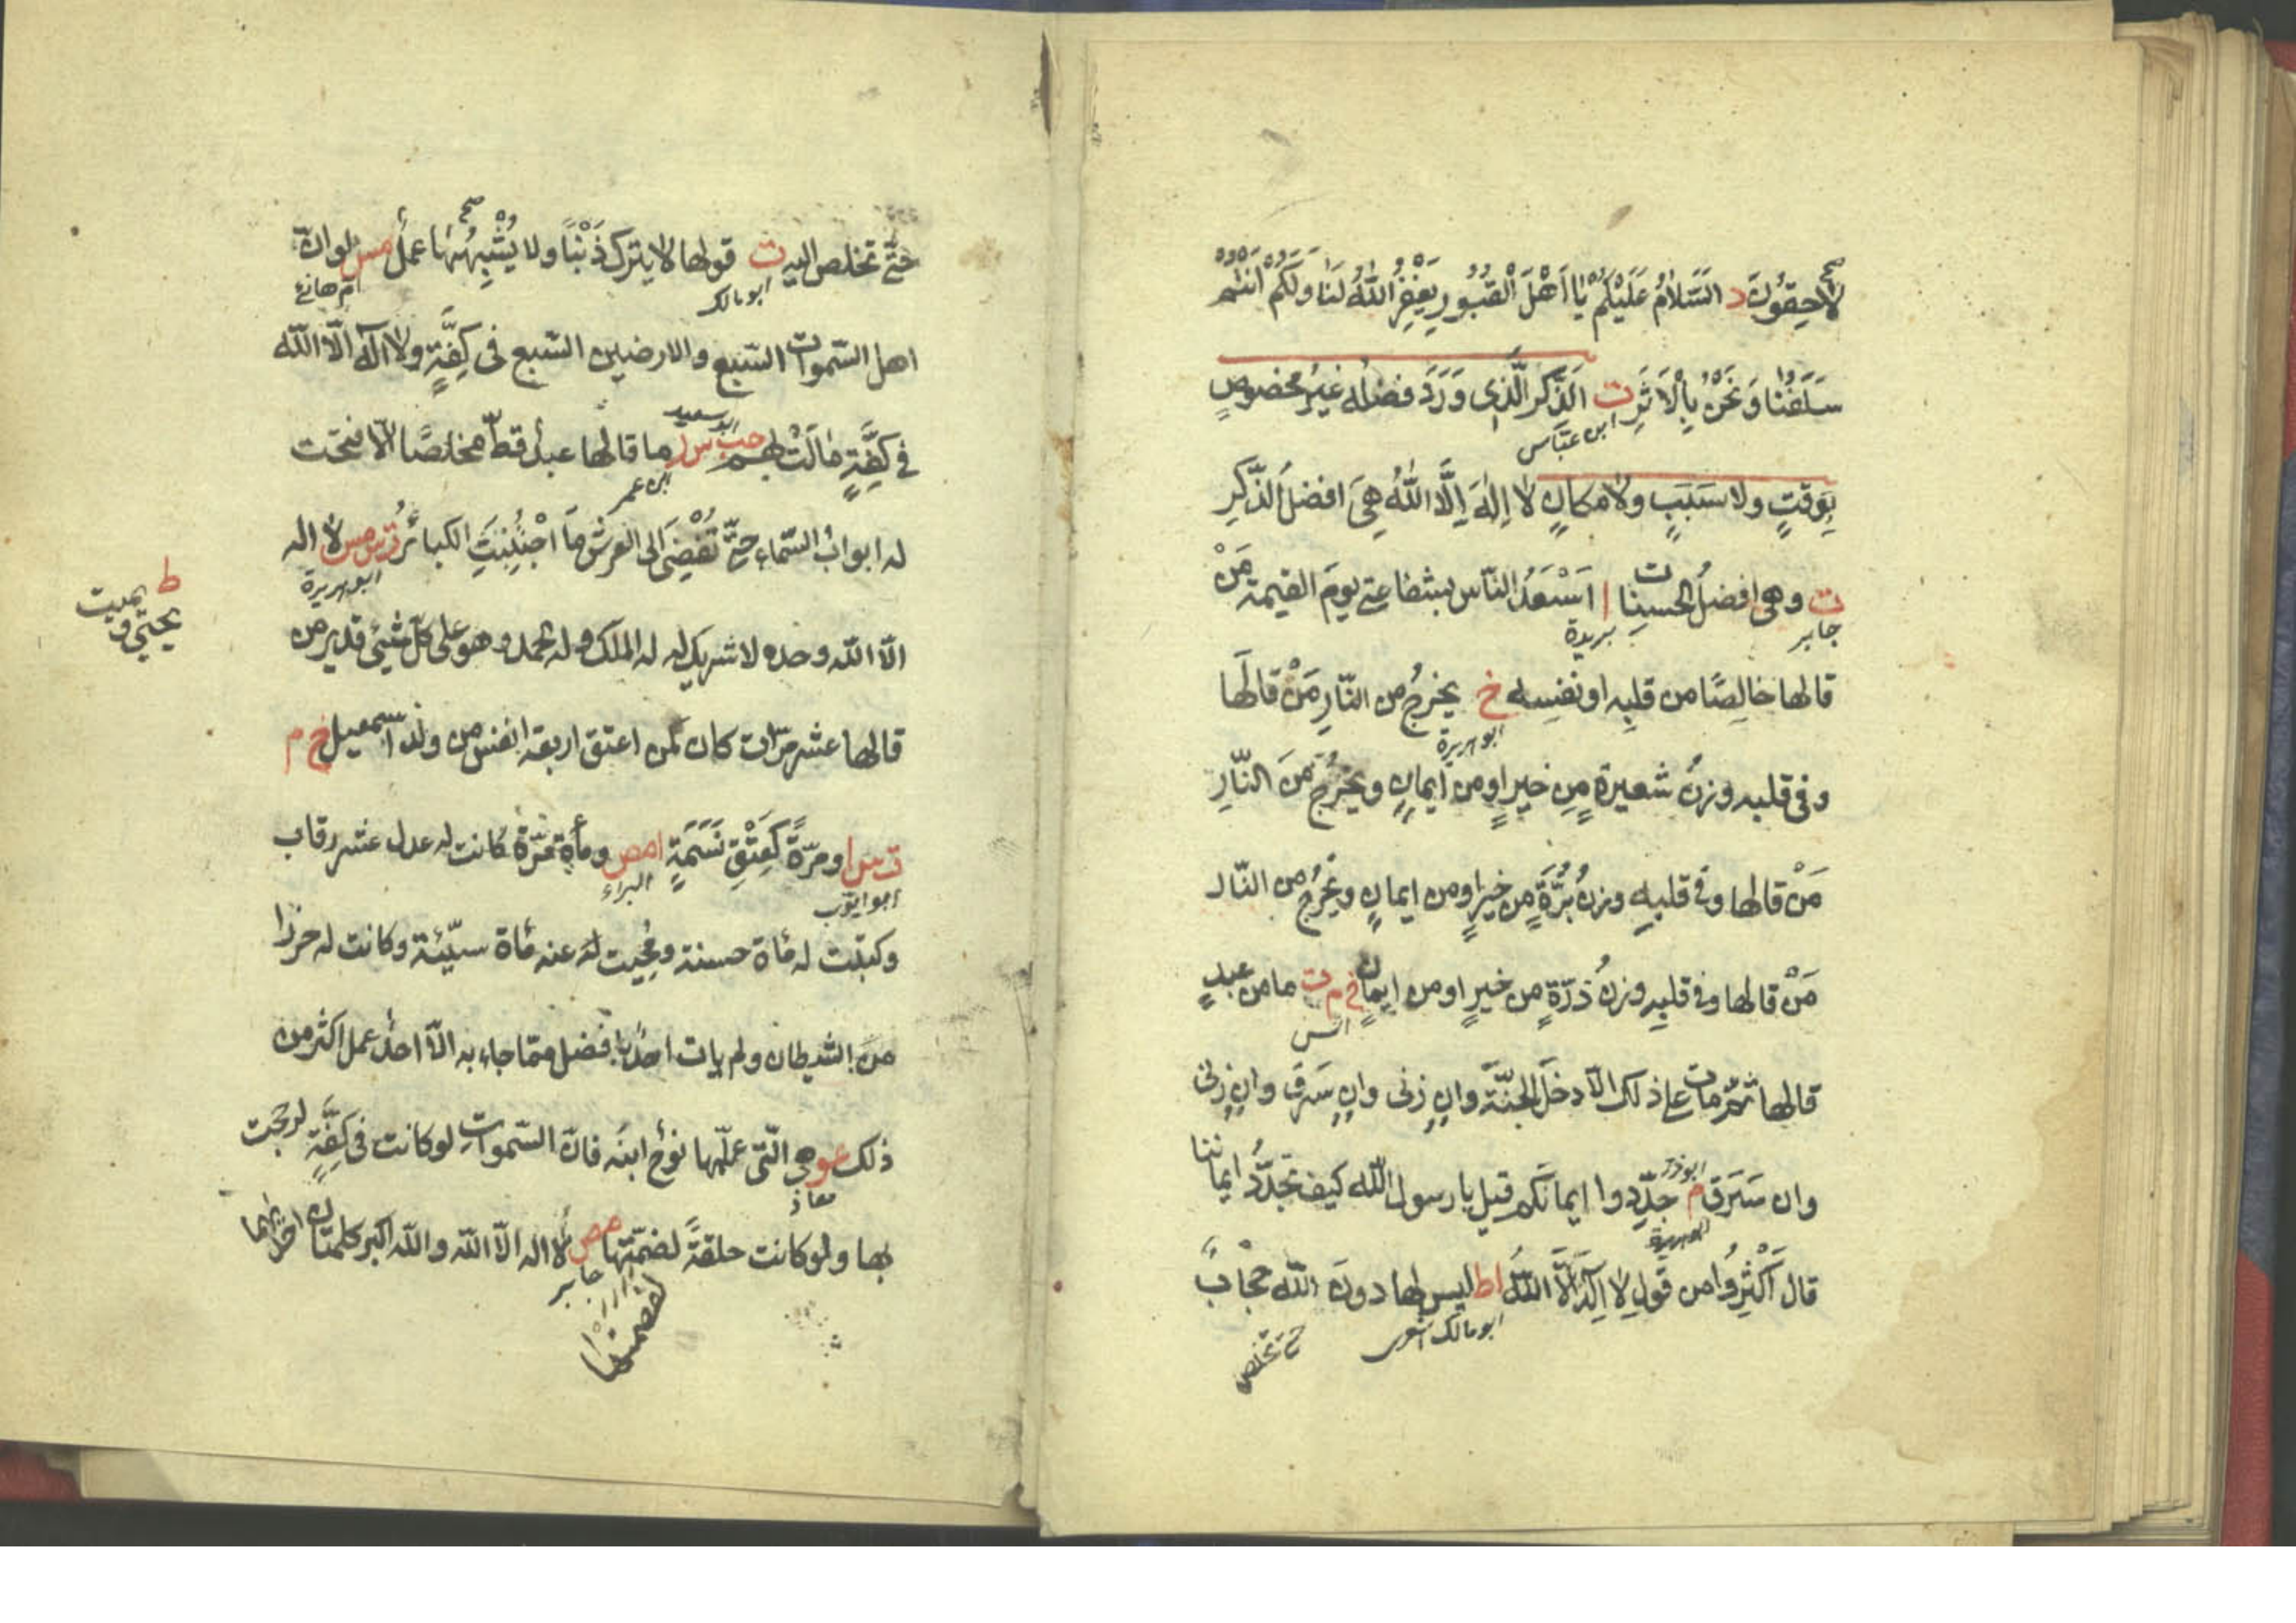 لَاحِقُونَ د السَّلَامُ عَلَيْكُمْ يَا اَهْلَ الْقُبُورِ يَغْفِرُ اللّٰهُ لَنَا وَلَكُمْ اَنْتُمْ
سَلَفُنَا وَنَحْنُ بِالْاَثَرِ ت الذِّكرُ الَّذِى وَرَدَ فضلُه غيرُ مخصوصٍ
ابن عبّاس
بِوقتٍ ولا سَبَبٍ ولا مكانٍ لا اِلٰهَ اِلَّا اللّٰهُ هِىَ افضلُ الذِّكرِ
ت وهى افضلُ الحسنات ا اَسْعَدُ النّاس بشفاعتى يومَ القيمة مَنْ
جابر بريدة
قالها خالِصًا من قلبِه او نفسِه خ يخرجُ من النّارِ مَنْ قالَها
ابو هريرة
وفى قلبه وزنُ شعيرةٍ مِن خيرٍ او من ايمانٍ ويخرُجُ مِنَ النّارِ
مَنْ قالها وفى قلبِه وزنُ بُرَّةٍ مِن خيرٍ او من ايمانٍ ويخرُجُ من النّار
مَنْ قالها وفى قلبِه وزنُ ذرّةٍ من خيرٍ او من ايمانٍ خ م ت ما من عبدٍ
انس
قالها ثمّ مات على ذلك الّا دخلَ الجنّةَ وانِ زنى وانِ سَرَقَ وانِ زنى
وان سَرَقَ م جدِّدوا ايمانَكم قيل يا رسول اللّٰه كيف نجدِّدُ ايماننا
ابوذر
ابو هريرة
قال اَكْثِرُوا من قولِ لا اِلٰهَ اِلَّا اللّٰهُ اط ليس لها دونَ اللّٰه حجابٌ
ابو مالك اشعرى
حتى تخلص
حتّى تخلص اليه ت قولها لا يترك ذَنْبًا ولا يُشْبِهُهَا عملٌ مس لو انّ
ابو مالك
امّ هانئ
اهل السّموات السّبع والارضين السّبع فى كِفَّةٍ ولا اله الّا اللّٰه
فى كِفَّةٍ مَالَتْ بهم حب س ر ما قالها عبدٌ قطّ مخلصًا الّا فتحت
ابو سعيد
ابن عمر
له ابوابُ السّماء حتّى تُفْضِىَ الى العرش مَا اجْتُنِبَتِ الكبائرُ ت س مس لا اله
ابو هريرة
الّا اللّٰه وحده لا شريك له له الملك وله الحمد وهو على كلّ شيئ قدير من
ط
يحيى ويميت
قالها عشر مرّات كان كمن اعتق اربعة انفس من ولد اسمعيل خ م
ت س ا ومرّةً كَعِتْقِ نَسَمَةٍ ا مص ومأة مرّة كانت له عدل عشر رقاب
ابو ايّوب
البراء
وكتبت له مأة حسنة ومُحِيت له عنه مأة سيّئة وكانت له حرزا
مِنَ الشيطان ولم يات احدٌ بافضل ممّا جاء به الّا احدٌ عمل اكثر من
ذلك عو هى الّتى علّمها نوحٌ ابنَه فانّ السّمواتِ لو كانت فى كِفَّةٍ لرجحت
معاذ
بها ولو كانت حلقةً لضمّتها مص لا اله الّا اللّٰه واللّٰه اكبر كلمتان احديهما
جابر
لفصمتها